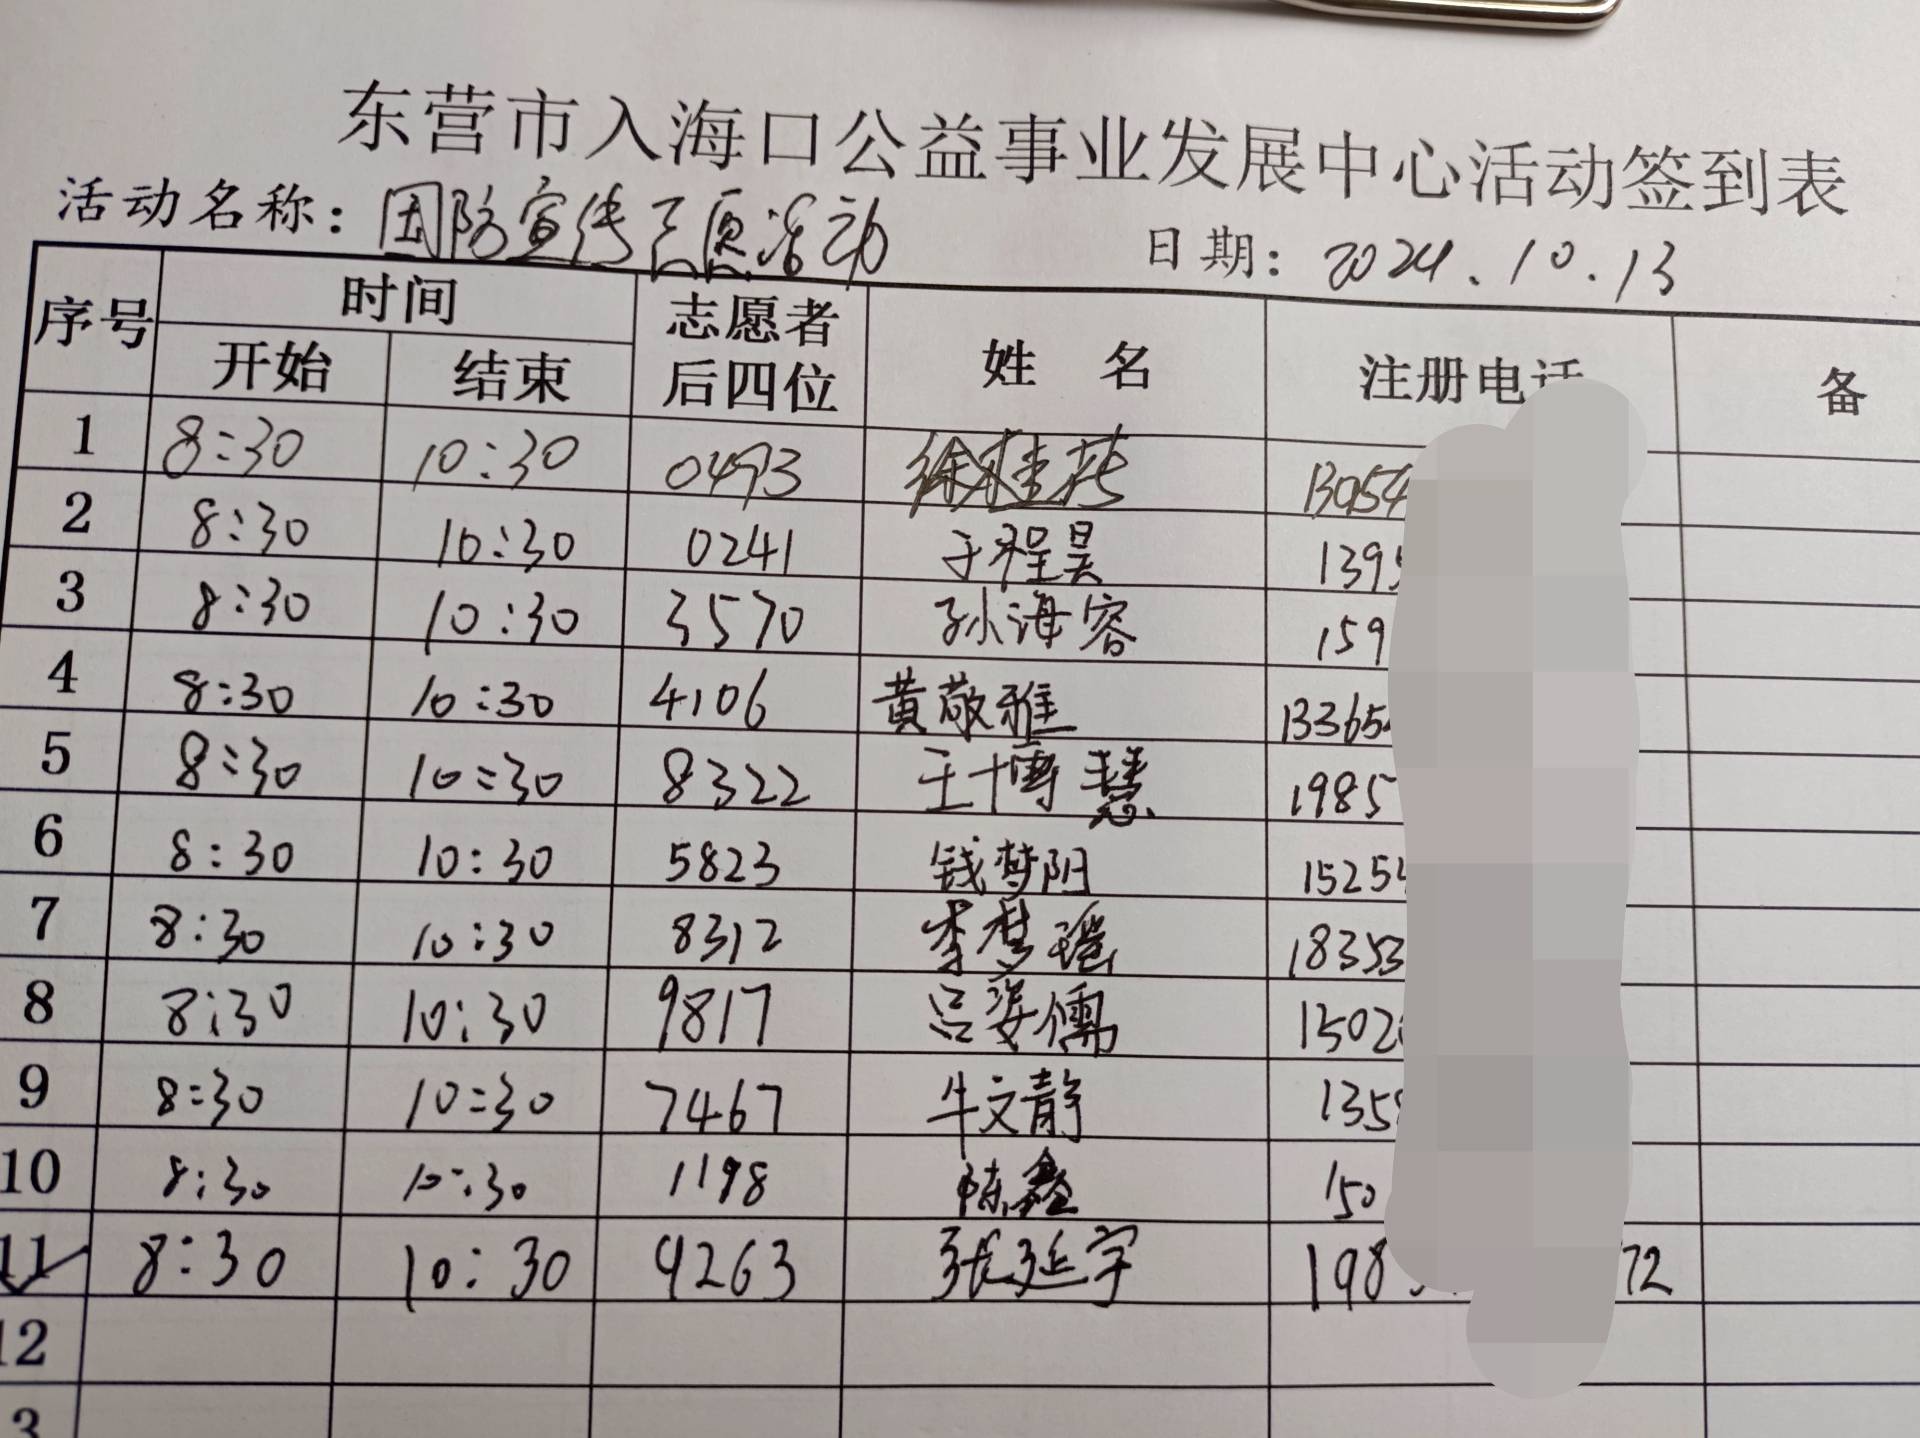 东营市入海口公益事业发展中心活动签到表
活动名称：国防宣传志愿活动 日期：2024.10.13
序号 时间 志愿者后四位 姓名 注册电话 备
开始 结束
1 8:30 10:30 0493 徐桂芬 13054
2 8:30 10:30 0241 于程昊 1395
3 8:30 10:30 3570 孙海容 159
4 8:30 10:30 4106 黄敬雅 13365
5 8:30 10:30 8322 王博慧 1985
6 8:30 10:30 5823 钱梦阳 15254
7 8:30 10:30 8312 李梦瑶 18353
8 8:30 10:30 9817 吕姿儒 1502
9 8:30 10:30 7467 牛文静 135
10 8:30 10:30 1198 陈鑫 150
11 8:30 10:30 9263 张延宇 198 72
12
3